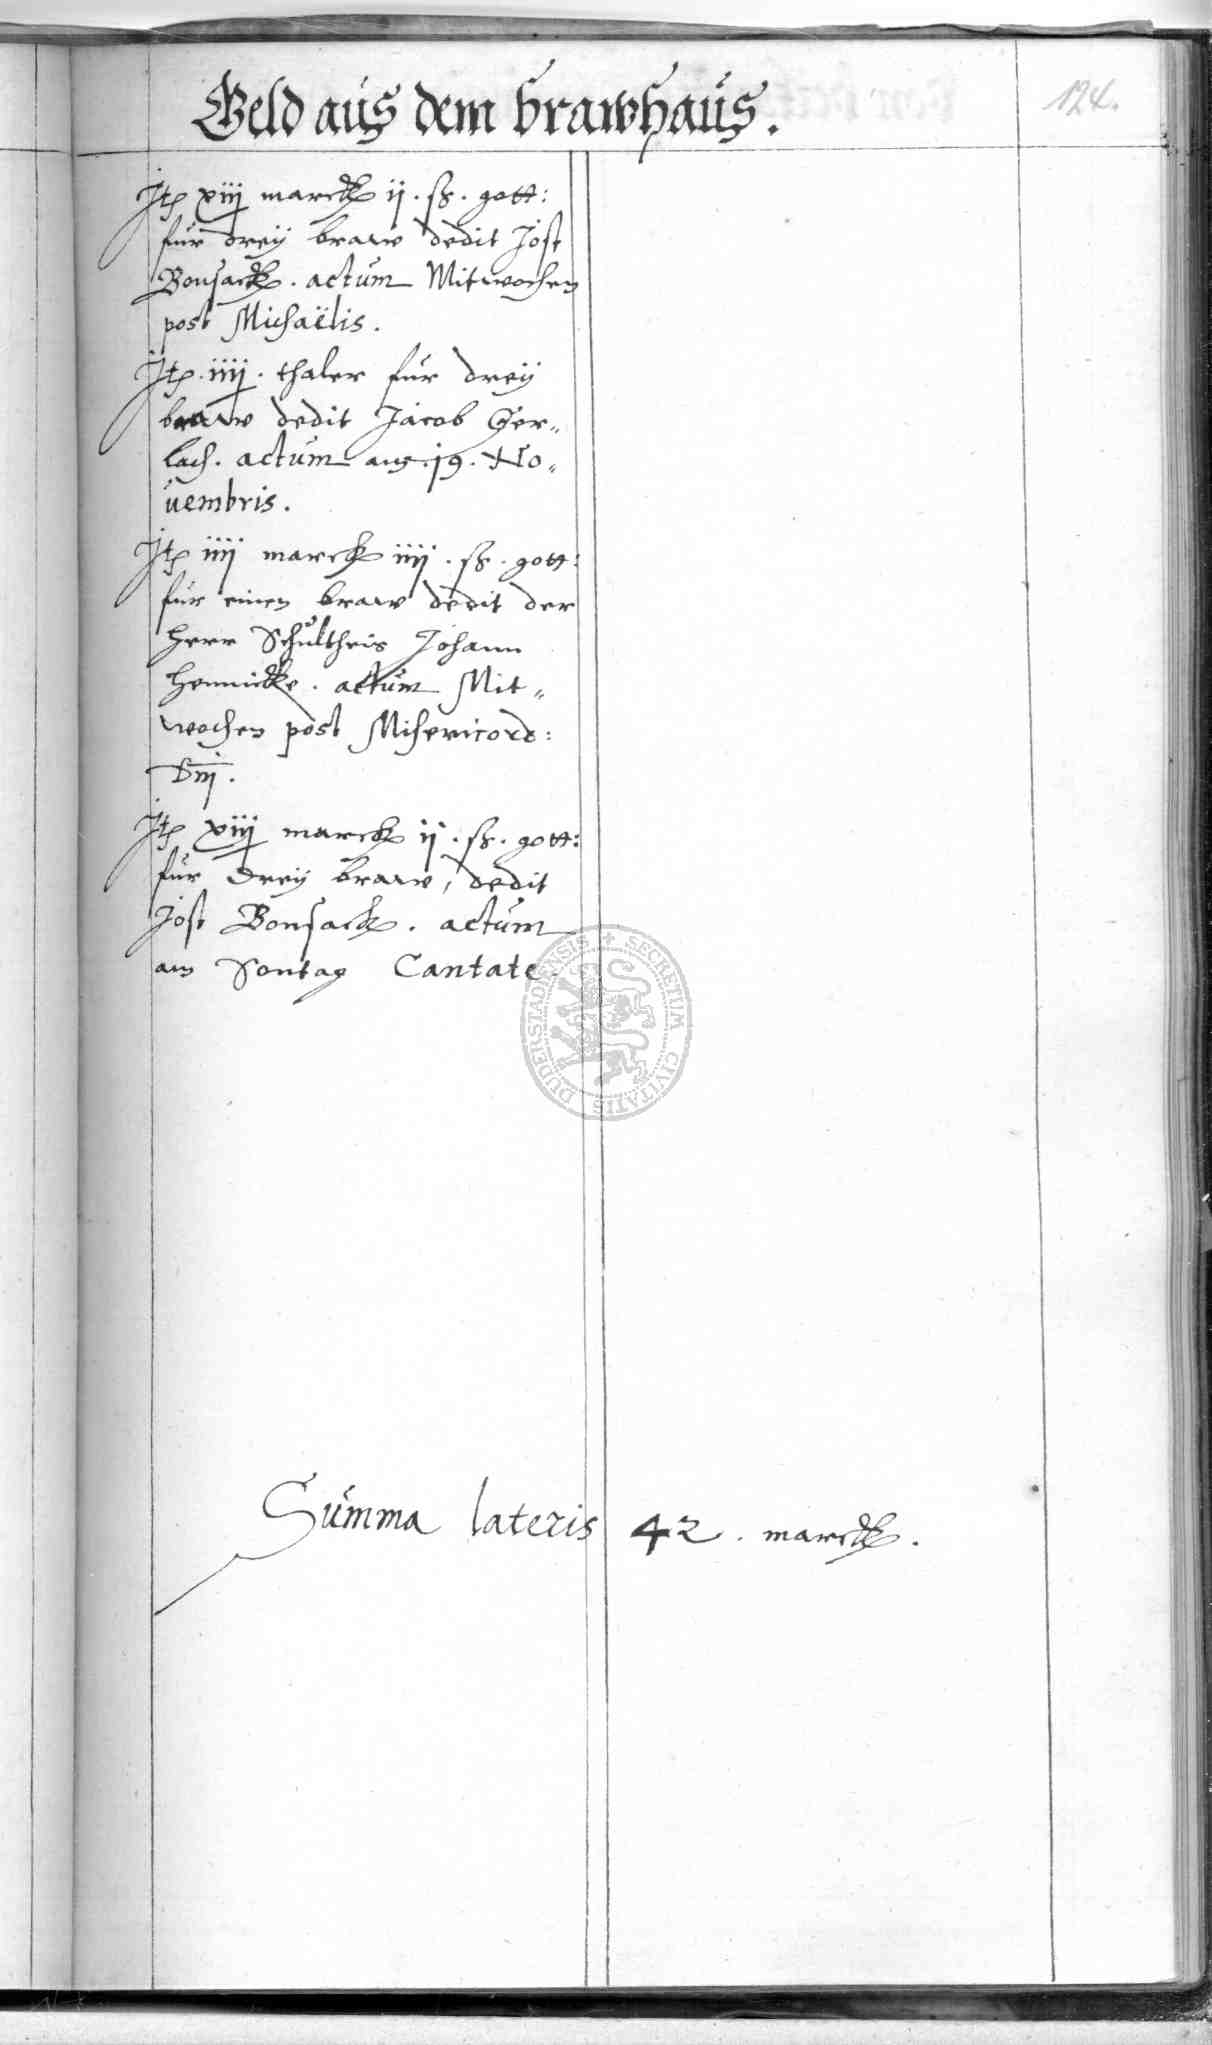 Geld aus dem brawhaus.
124.
Jtp xiij marck ij. sz. gott:
für dreÿ braw dedit Jost
Bonsack. actum Mitwochen
post Michaëlis.
Jtp. iiij. thaler für dreÿ
braw dedit Jacob Ger„
lach. actum am. 19. No„
uembris.
Jtp iiij marck iiij. sz. gott:
für einen braw dedit der
Herr Schultheis Johann
Hennicke. actum Mit„
wochen post Misericord:
Dnj.
Jtp xiij marck ij. sz. gott:
für dreÿ braw, dedit
Jost Bonsack. actum
am Sontag Cantate.
SECRETUM CIVITATIS DUDERSTADIENSIS
Summa lateris 42. marck.